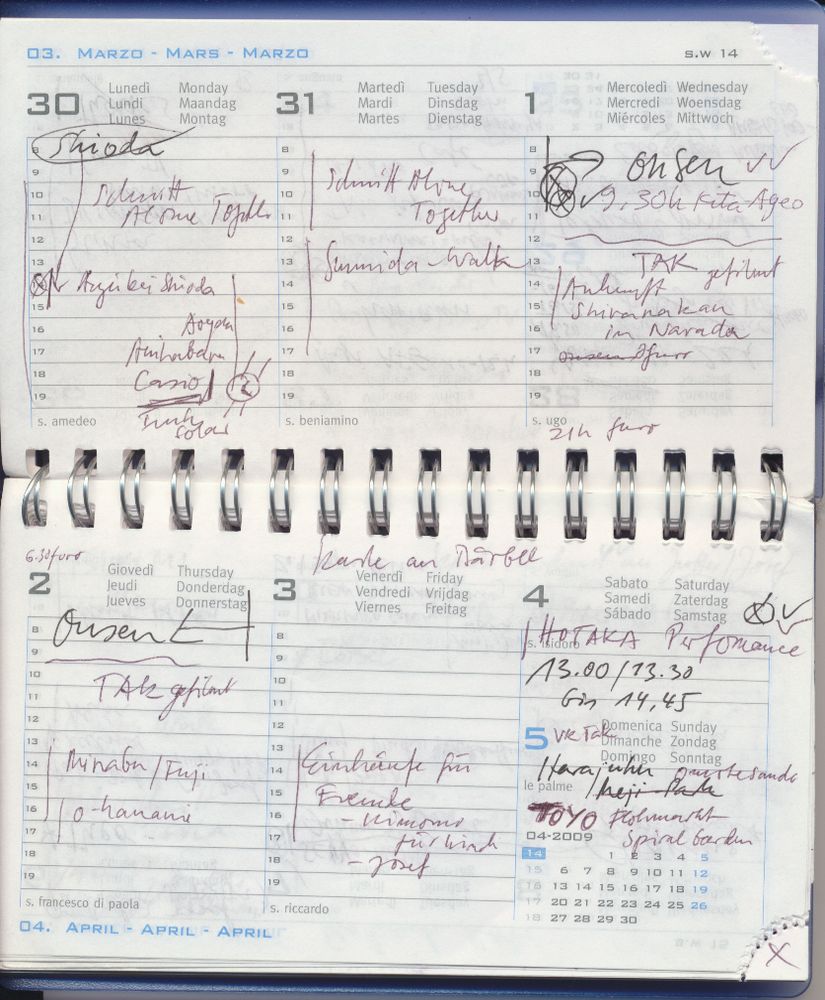 03. MARZO - MARS - MARZO
s.w 14
30
Lunedì Monday
Lundi Maandag
Lunes Montag
31
Martedì Tuesday
Mardi Dinsdag
Martes Dienstag
1
Mercoledì Wednesday
Mercredi Woensdag
Miércoles Mittwoch
8
9
10
11
12
13
14
15
16
17
18
19
Shioda
Schnitt
Alone Together
bei Shioda
Aoyama
Akihabara
Casio
Funk
solar
s. amedeo
8
9
10
11
12
13
14
15
16
17
18
19
Schnitt Alone
Together
Sumida-Walk
s. beniamino
8
9
10
11
12
13
14
15
16
17
18
19
Onsen
9.30h Kita-Ageo
TAK gefilmt
Ankunft
Shiranakan
in Narada
onsen Ofuro
s. ugo
21h furo
6.30 furo
2
Giovedì Thursday
Jeudi Donderdag
Jueves Donnerstag
Karte an Bärbel
3
Venerdì Friday
Vendredi Vrijdag
Viernes Freitag
4
Sabato Saturday
Samedi Zaterdag
Sábado Samstag
8
9
10
11
12
13
14
15
16
17
18
19
Onsen
TAK gefilmt
Minabu/Fuji
O-hanami
s. francesco di paola
8
9
10
11
12
13
14
15
16
17
18
19
Einkäufe für
Freunde
- Kimono
für Kind
- Josef
s. riccardo
HOTAKA Perfomance
s. isidoro
13.00/13.30
bis 14.45
5
Domenica Sunday
Dimanche Zondag
Domingo Sonntag
Harajuku omotesando
le palme
Meiji-Park
TOYO Flohmarkt
Spiral Garden
04-2009
14 1 2 3 4 5
15 6 7 8 9 10 11 12
16 13 14 15 16 17 18 19
17 20 21 22 23 24 25 26
18 27 28 29 30
04. APRIL - APRIL - APRIL
X